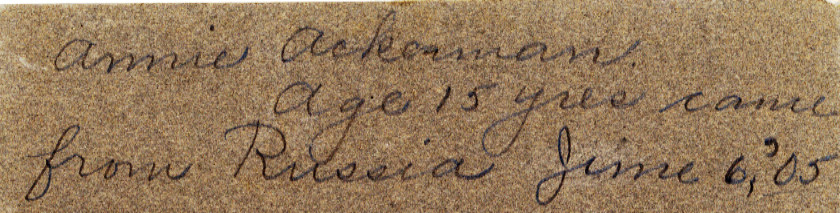 Annie Ackerman.
Age 15 yres came
from Russia June 6, '05